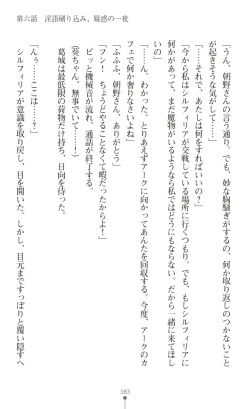 第六話　淫語刷り込み、疑惑の一夜
「うん、朝野さんの言う通り。でも、妙な胸騒ぎがするの、何か取り返しのつかないこと
が起きそうな気がして……」
「……それで、あたしは何をすればいいの？」
「これからシルフィリアが交戦している場所に行くつもり。でも、もしシルフィリアに
何かがあって、まだ魔物がいるようなら私ではどうにもならない。だから一緒に来てほし
いの」
「……ん、わかった。とりあえずアークに向かってあんたを回収する。今度、アークのカ
フェで何か奢りなさいよね」
「ふふふ、朝野さん、ありがとう」
「フン！　ちょうどやることなくて暇だったわよ！」
ピッと機械音が流れ、通話が終了する。
（葵ちゃん、無事でいて……！）
葛城は最低限の荷物だけ持ち、日向を待った。
「んぅ……ここは……？」
シルフィリアが意識を取り戻し、目を開いた。しかし、目元まですっぽりと覆い隠すヘ
383